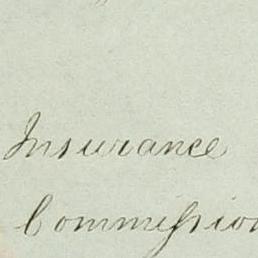 Insurance
Commission